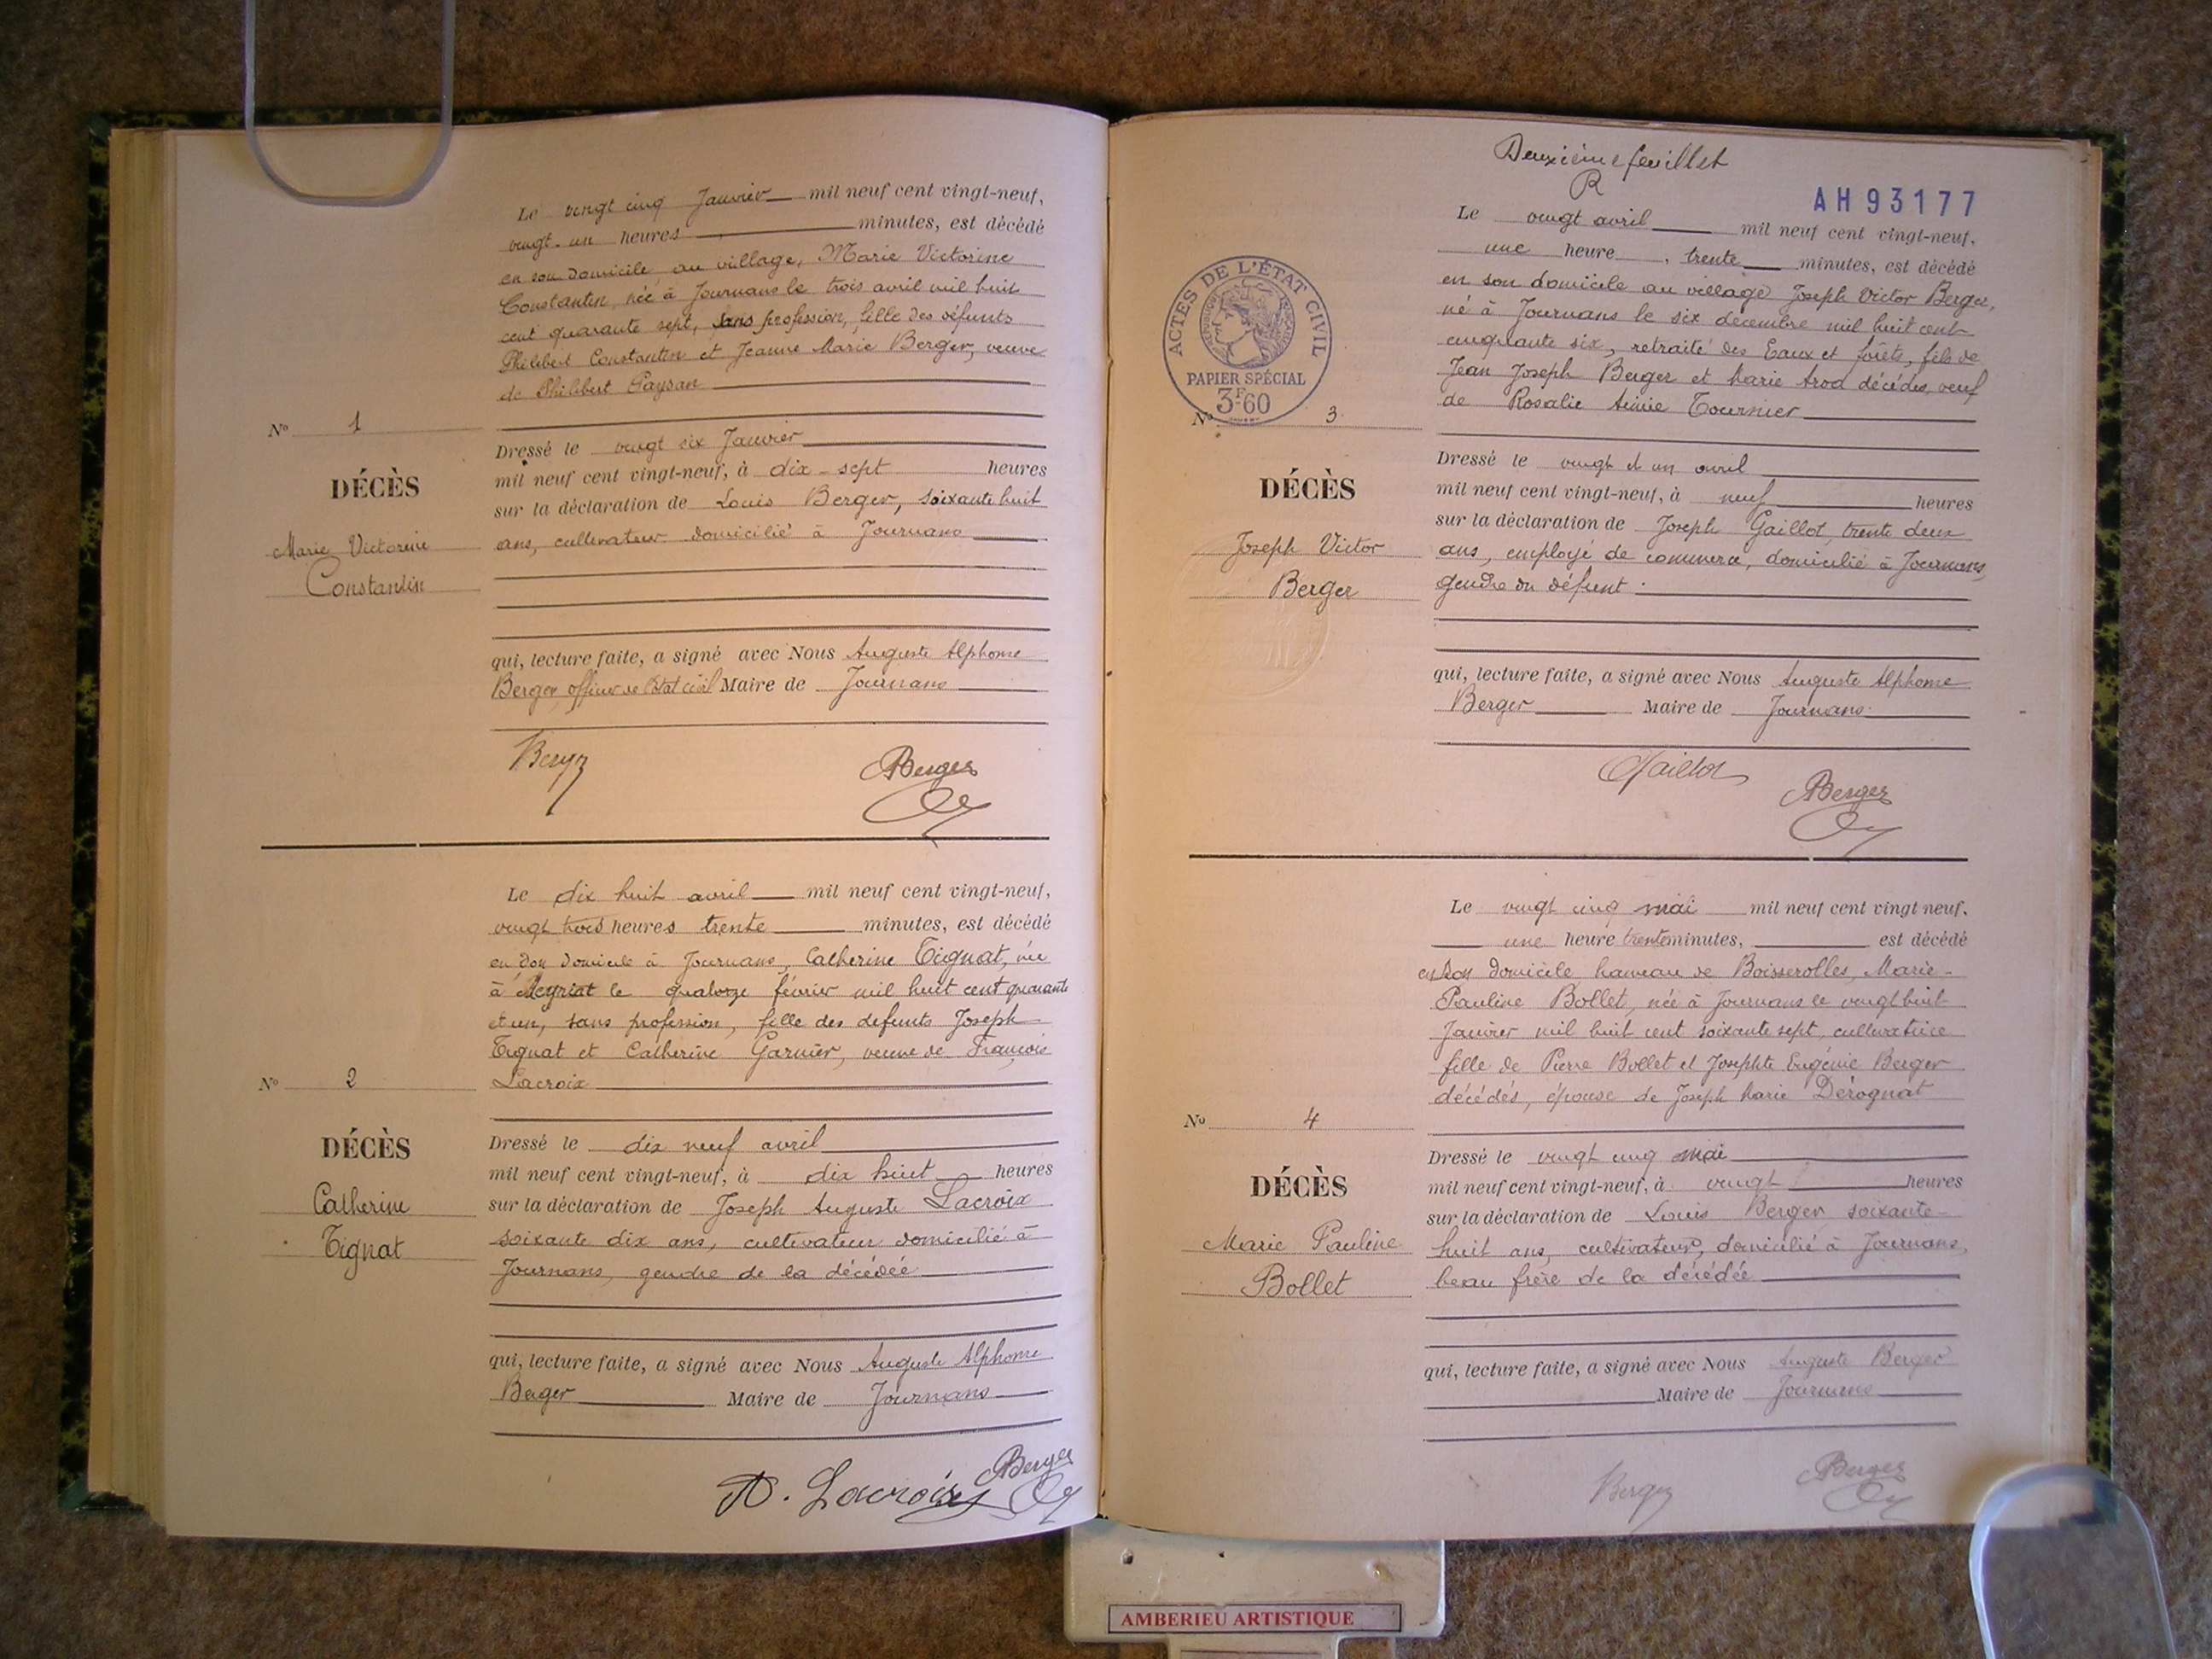 Le vingt cinq Janvier mil neuf cent vingt-neuf,
vingt-un heures minutes, est décédé
en son domicile au village, Marie Victorine
Constantin, née à Journans le trois avril mil huit
cent quarante sept, sans profession, fille des défunts
Philibert Constantin et Jeanne Marie Berger, veuve
de Philibert Paysan
Nº 1
DÉCÈS
Marie Victorine
Constantin
Dressé le vingt six Janvier
mil neuf cent vingt-neuf, à dix-sept heures
sur la déclaration de Louis Berger, soixante huit
ans, cultivateur domicilié à Journans
qui, lecture faite, a signé avec Nous Auguste Alphonse
Berger, officier de l'Etat civil Maire de Journans
Berger
ABerger
Le dix huit avril mil neuf cent vingt-neuf,
vingt trois heures trente minutes, est décédé
en son domicile à Journans, Catherine Tignat, née
à Meyriat le quatorze février mil huit cent quarante
et un, sans profession, fille des defunts Joseph
Tignat et Catherine Garnier, veuve de François
Lacroix
Nº 2
DÉCÈS
Catherine
Tignat
Dressé le dix neuf avril
mil neuf cent vingt-neuf, à dix huit heures
sur la déclaration de Joseph Auguste Lacroix
soixante dix ans, cultivateur domicilié à
Journans, gendre de la décédée
qui, lecture faite, a signé avec Nous Auguste Alphonse
Berger Maire de Journans
A. Lacroix
ABerger
Deuxième feuillet
R
AH93177
Le vingt avril mil neuf cent vingt-neuf,
une heure, trente minutes, est décédé
en son domicile au village Joseph Victor Berger,
né à Journans le six décembre mil huit cent
cinquante six, retraité des Eaux et forêts, fils de
Jean Joseph Berger et Marie Arod décédés, veuf
de Rosalie Aimée Tournier
ACTES DE L'ÉTAT CIVIL
PAPIER SPÉCIAL
3F60
Nº 3
DÉCÈS
Joseph Victor
Berger
Dressé le vingt et un avril
mil neuf cent vingt-neuf, à neuf heures
sur la déclaration de Joseph Gaillot, trente deux
ans, employé de commerce, domicilié à Journans,
gendre du défunt.
qui, lecture faite, a signé avec Nous Auguste Alphonse
Berger Maire de Journans
Gaillot
ABerger
Le vingt cinq mai mil neuf cent vingt neuf.
une heure trente minutes, est décédé
en son domicile hameau de Boisserolles, Marie-
Pauline Bollet, née à Journans le vingt huit
Janvier mil huit cent soixante sept, cultivatrice
fille de Pierre Bollet et Josephte Eugénie Berger
décédés, épouse de Joseph Marie Dérognat
Nº 4
DÉCÈS
Marie Pauline
Bollet
Dressé le vingt cinq mai
mil neuf cent vingt-neuf, à vingt heures
sur la déclaration de Louis Berger, soixante-
huit ans, cultivateur, domicilié à Journans,
beau frère de la décédée
qui, lecture faite, a signé avec Nous Auguste Berger
Maire de Journans
Berger
ABerger
AMBERIEU ARTISTIQUE